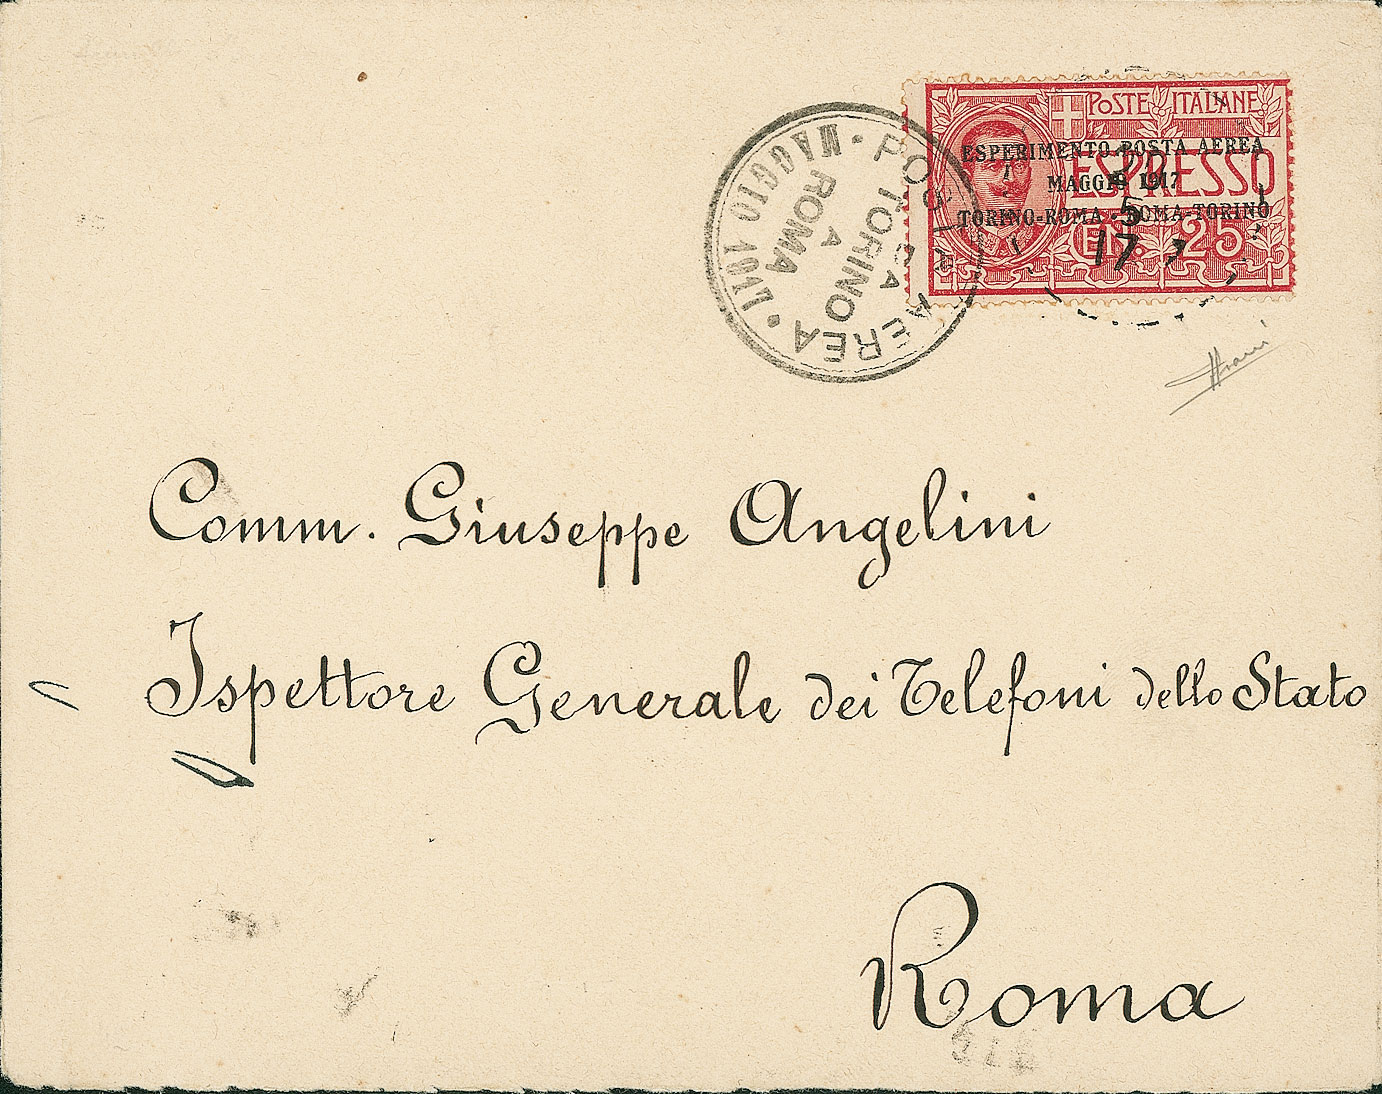 POSTE ITALIANE
ESPRESSO
CEN. 25
ESPERIMENTO POSTA AEREA
MAGGIO 1917
TORINO-ROMA · ROMA-TORINO
POSTA AEREA · MAGGIO 1917 ·
DA
TORINO
A
ROMA
5
17
Comm. Giuseppe Angelini
Ispettore Generale dei Telefoni dello Stato
Roma